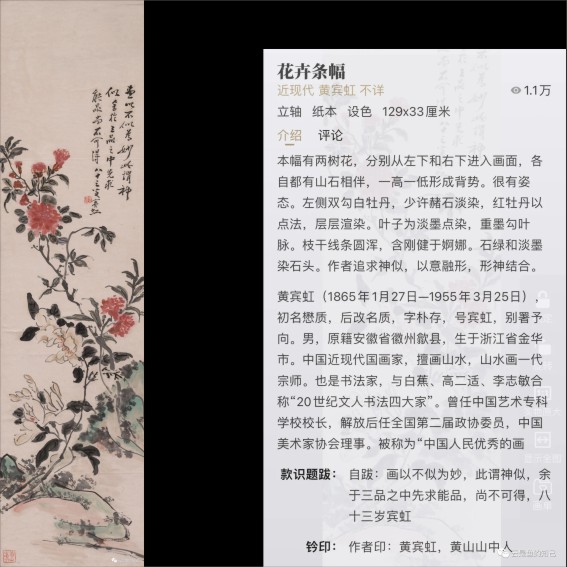 畫以不似為妙此謂神
似余於三品之中先求
能品尚不可得八十三賓虹
花卉条幅
近现代 黄宾虹 不详
1.1万
立轴 纸本 设色 129x33厘米
介绍 评论
本幅有两树花，分别从左下和右下进入画面，各
自都有山石相伴，一高一低形成背势。很有姿
态。左侧双勾白牡丹，少许赭石淡染，红牡丹以
点法，层层渲染。叶子为淡墨点染，重墨勾叶
脉。枝干线条圆浑，含刚健于婀娜。石绿和淡墨
染石头。作者追求神似，以意融形，形神结合。
黄宾虹（1865年1月27日—1955年3月25日），
初名懋质，后改名质，字朴存，号宾虹，别署予
向。男，原籍安徽省徽州歙县，生于浙江省金华
市。中国近现代国画家，擅画山水，山水画一代
宗师。也是书法家，与白蕉、高二适、李志敏合
称“20世纪文人书法四大家”。曾任中国艺术专科
学校校长，解放后任全国第二届政协委员，中国
美术家协会理事。被称为“中国人民优秀的画
款识题跋： 自跋：画以不似为妙，此谓神似，余
于三品之中先求能品，尚不可得，八
十三岁宾虹
钤印： 作者印：黄宾虹，黄山山中人